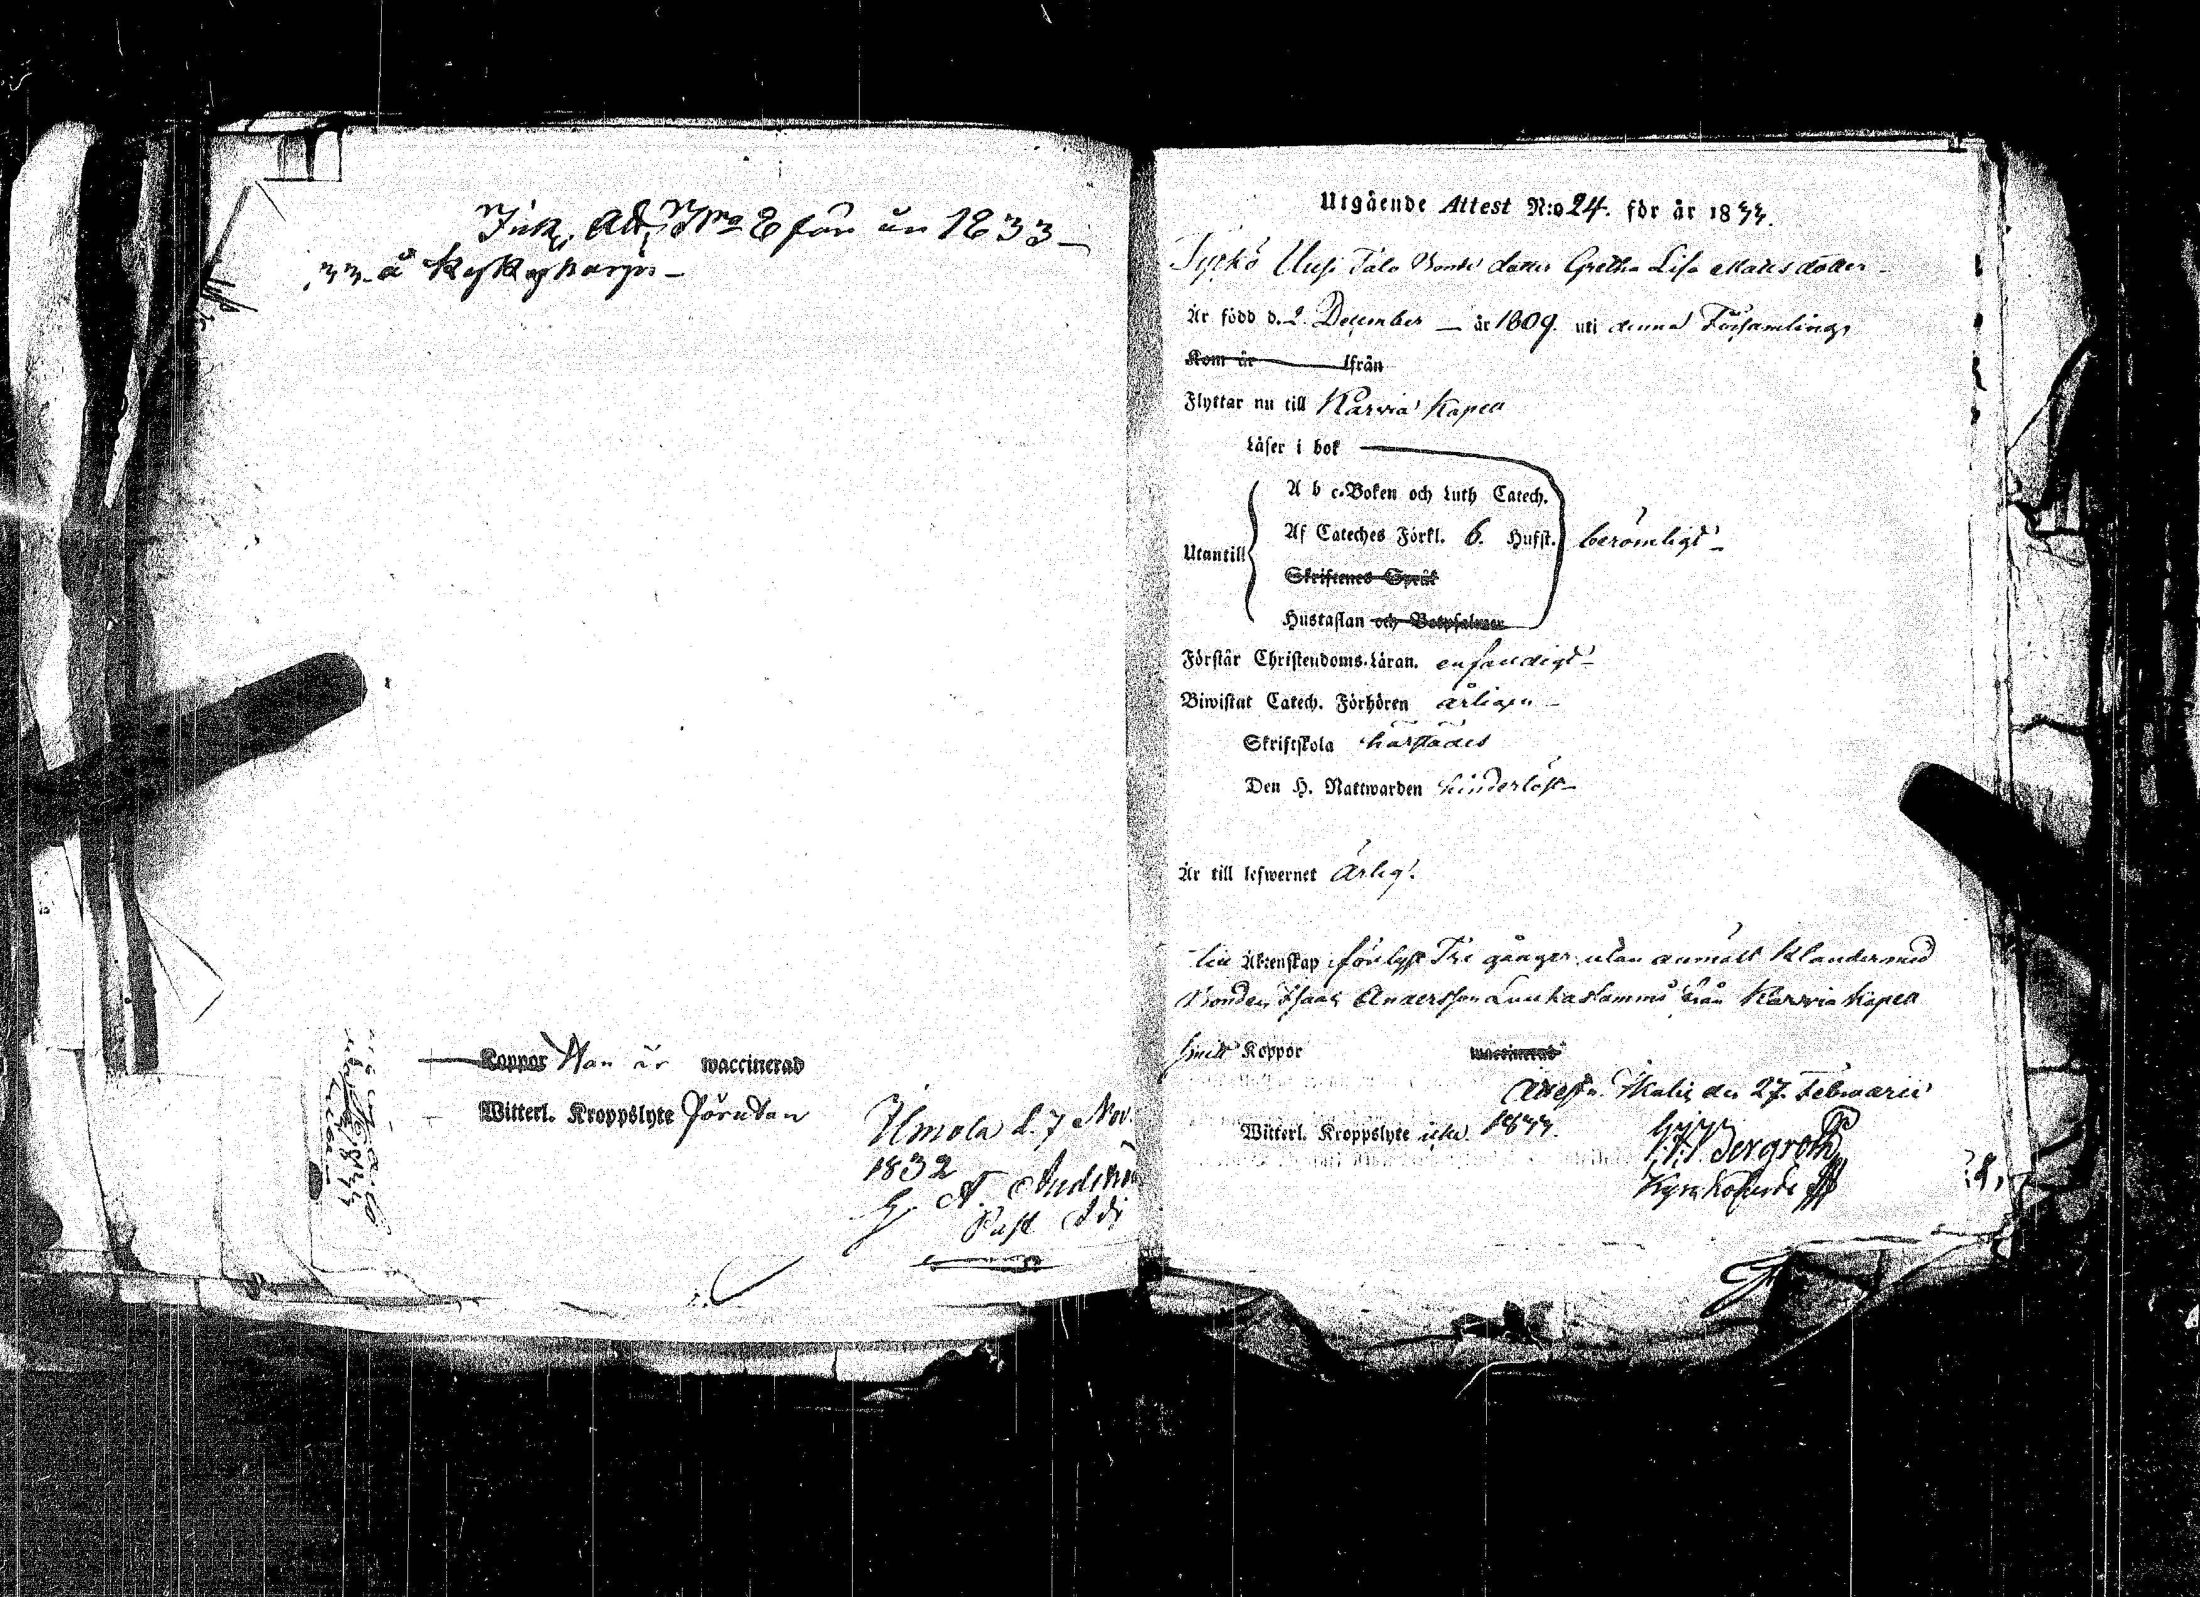 Ink. Att. No 8 för år 1833
33. å Kyskyskarju
Koppor Han är waccinerad
Witterl. Kroppslyte förutan
Ilmola d. 7 Nov.
1832
G. A.
Past Adj
Utgående Attest N:o 24. för år 1833.
Syrkö Uusi Talo Bonde dotter Gretha Lisa Matts dotter
Är född d. 2 December – år 1809. uti denna Församling,
Kom år Ifrån
Flyttar nu till Karvia Kapell
Läser i bok
A b c-Boken och Luth Catech.
Utantill Af Cateches Förkl. 6. Hufst. berömligt
Skriftenes Språk
Hustaflan och Botpsalmer
Förstår Christendoms-Läran. enfaldigt
Biwistat Catech. Förhören årligen
Skriftskola härstädes
Den H. Nattwarden hinderlöst
Är till lefwernet ärlig.
till Äktenskap förlyst Tre gånger utan anmält klander med
Bonden Isaac Andersson Luukaslammi från Karvia Kapell
haft Koppor waccinerad
Attest. Ikalis den 27. Februarii
Witterl. Kroppslyte icke. 1833.
Bergroth